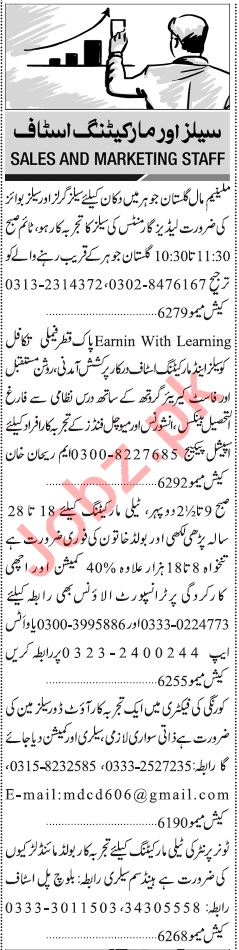 سیلز اور مارکیٹنگ اسٹاف
SALES AND MARKETING STAFF
ملینیم مال گلستان جوہر میں دکان کیلئے سیلز گرلز اور سیلز بوائز
کی ضرورت لیڈیز گارمنٹس کی سیلز کا تجربہ کار ہو، ٹائم صبح
11:30 تا 10:30 گلستان جوہر کے قریب رہنے والے کو
ترجیح 0302-8476167، 0313-2314372
کیش میمو 6279
Earnin With Learning پاک قطر فیملی تکافل
کو سیلز اینڈ مارکیٹنگ اسٹاف درکار پرکشش آمدنی، روشن مستقبل
اور فاسٹ کیریئر گروتھ کے ساتھ درس نظامی سے فارغ
التحصیل بینکس، انشورنس اور میوچل فنڈز کے تجربہ کار افراد کیلئے
اسپیشل پیکیج 0300-8227685 ایم ریحان خان
کیش میمو 6292
صبح 9 تا ½2 دوپہر، ٹیلی مارکیٹنگ کیلئے 18 تا 28
سالہ پڑھی لکھی اور بولڈ خاتون کی فوری ضرورت ہے
تنخواہ 8 تا 18 ہزار علاوہ 40% کمیشن اور اچھی
کارکردگی پر ٹرانسپورٹ الاؤنس بھی رابطہ کیلئے
0333-0224773 اور 0300-3995886 یا واٹس
ایپ 0323-2400244 پر رابطہ کریں
کیش میمو 6255
کورنگی کی فیکٹری میں ایک تجربہ کار آؤٹ ڈور سیلز مین کی
ضرورت ہے ذاتی سواری لازمی، سیلری اور کمیشن دیا جائے
گا رابطہ: 0333-2527235، 0315-8232585
E-mail:mdcd606@gmail.com
کیش میمو 6190
ٹونر پرنٹر کی ٹیلی مارکیٹنگ کیلئے تجربہ کار بولڈ مائنڈڈ لڑکیوں
کی ضرورت ہے ہینڈسم سیلری رابطہ: بلوچ پل اسٹاف
رابطہ: 34305558، 0333-3011503
کیش میمو 6268
Jobz.pk